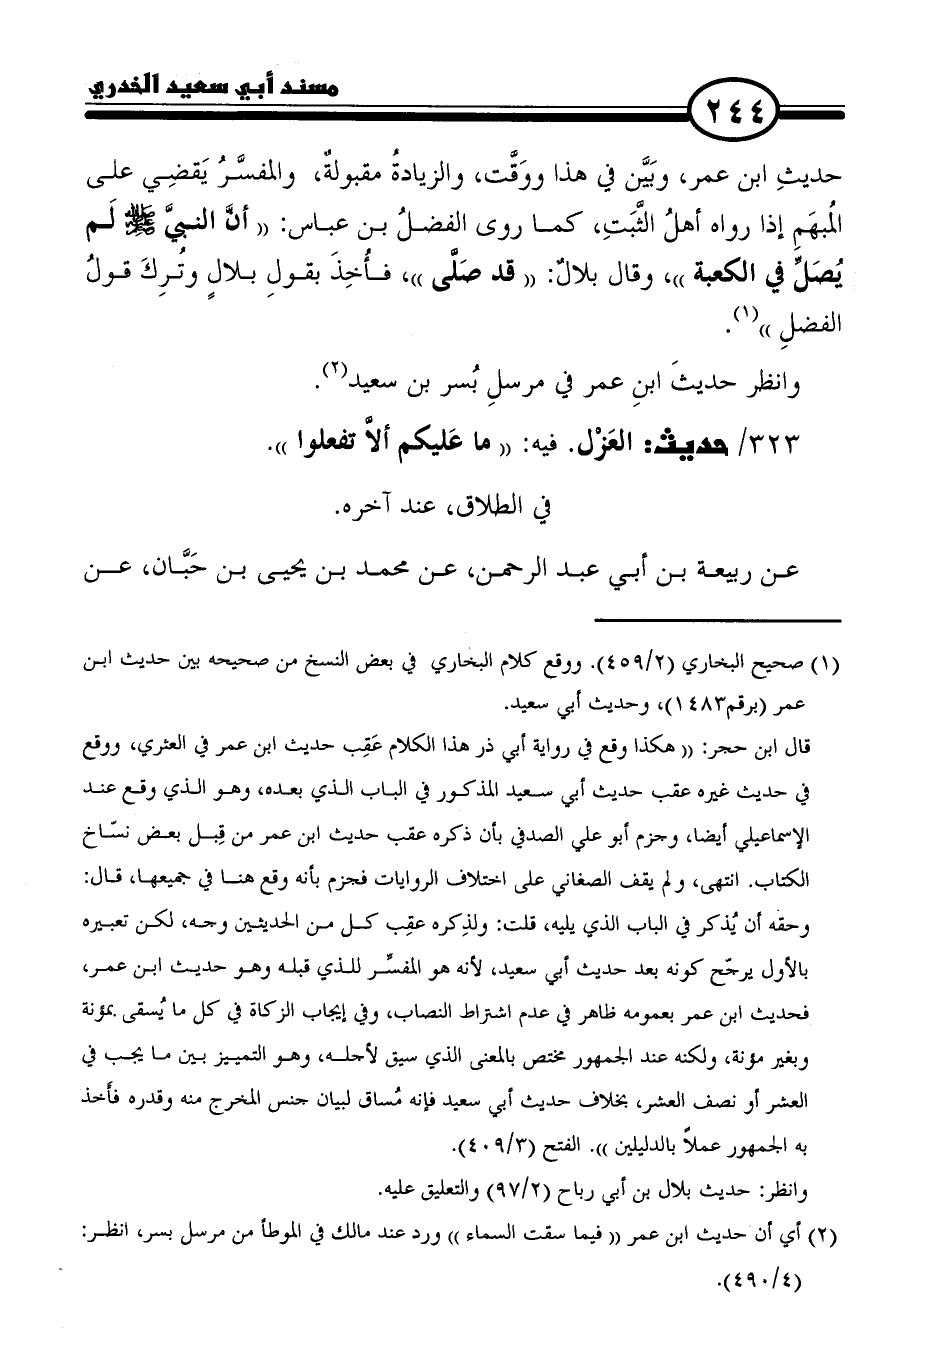 مسند أبي سعيد الخدري
٢٤٤
حديثِ ابن عمر، وبَيَّن في هذا ووَقَّت، والزيادةُ مقبولةٌ، والمفسَّرُ يَقضِي على
المُبهَمِ إذا رواه أهلُ الثَّبَتِ، كما روى الفضلُ بن عباس: (( أنَّ النبيَّ ﷺ لَم
يُصَلِّ في الكعبة ))، وقال بلالٌ: (( قد صَلَّى ))، فأُخِذَ بقولِ بلالٍ وتُرِكَ قولُ
الفضلِ ))(١).
وانظر حديثَ ابنِ عمر في مرسلِ بُسر بن سعيد(٢).
٣٢٣/ حديث: العَزْل. فيه: (( ما عَليكم ألاَّ تفعلوا )).
في الطلاق، عند آخره.
عن ربيعة بن أبي عبد الرحمن، عن محمد بن يحيى بن حَبَّان، عن
(١) صحيح البخاري (٤٥٩/٢). ووقع كلام البخاري في بعض النسخ من صحيحه بين حديث ابن
عمر (برقم١٤٨٣)، وحديث أبي سعيد.
قال ابن حجر: (( هكذا وقع في رواية أبي ذر هذا الكلام عَقِب حديث ابن عمر في العثري، ووقع
في حديث غيره عقب حديث أبي سعيد المذكور في الباب الذي بعده، وهو الذي وقع عند
الإسماعيلي أيضا، وجزم أبو علي الصدفي بأن ذكره عقب حديث ابن عمر من قِبل بعض نسّاخ
الكتاب. انتهى، ولم يقف الصغاني على اختلاف الروايات فجزم بأنه وقع هنا في جميعها، قال:
وحقه أن يُذكر في الباب الذي يليه، قلت: ولذِكره عقِب كل من الحديثين وجه، لكن تعبيره
بالأول يرجّح كونه بعد حديث أبي سعيد، لأنه هو المفسِّر للذي قبله وهو حديث ابن عمر،
فحديث ابن عمر بعمومه ظاهر في عدم اشتراط النصاب، وفي إيجاب الزكاة في كل ما يُسقى بمؤنة
وبغير مؤنة، ولكنه عند الجمهور مختص بالمعنى الذي سيق لأجله، وهو التمييز بين ما يجب في
العشر أو نصف العشر، بخلاف حديث أبي سعيد فإنه مُساق لبيان جنس المخرج منه وقدره فأخذ
به الجمهور عملاً بالدليلين )). الفتح (٤٠٩/٣).
وانظر: حديث بلال بن أبي رباح (٩٧/٢) والتعليق عليه.
(٢) أي أن حديث ابن عمر (( فيما سقت السماء )) ورد عند مالك في الموطأ من مرسل بسر، انظر:
(٤٩٠/٤).